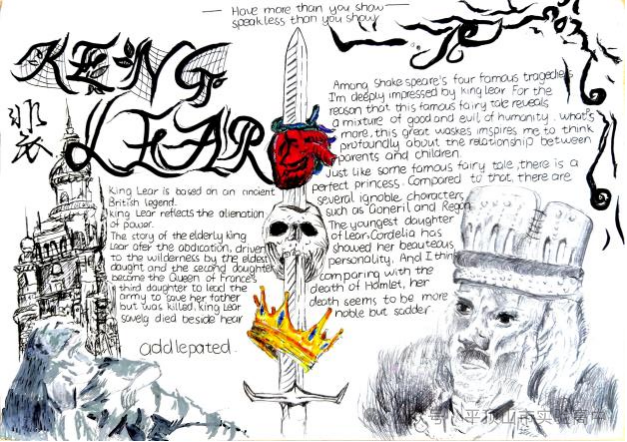 Have more than you show
speak less than you show
KING
LEAR
King Lear is based on an ancient
British legend.
King Lear reflects the alienation
of power.
The story of the elderly king
Lear after the abdication, driven
to the wilderness by the eldest
daught and the second daughter
become the Queen of France's
third daughter to lead the
army to save her father
but was killed. king Lear
savely died beside hear
addlepated.
Among shakespeare's four famous tragedies
I'm deeply impressed by king lear For the
reason that this famous fairy tale reveals
a mixture of good and evil of humanity. what's
more, this great waskes inspires me to think
profoundly about the relationship between
parents and children.
Just like some famous fairy tale, there is a
perfect princess. Compared to that, there are
several ignoble characters,
such as Goneril and Regan.
The youngest daughter
of lear. Cordelia has
showed her beauteous
personality. And I think
comparing with the
death of Hamlet, her
death seems to be more
noble but sadder
平顶山市实验高中